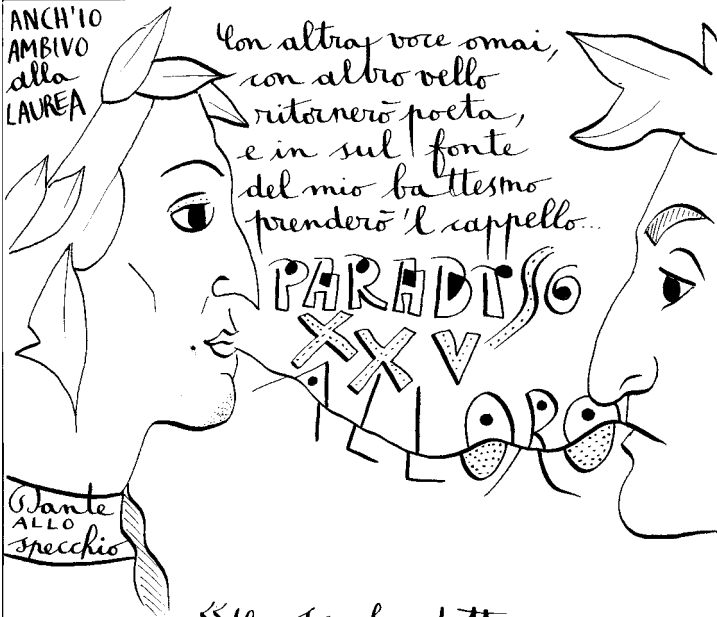 ANCH'IO
AMBIVO
alla
LAUREA
Con altra voce omai,
con altro vello
ritornerò poeta,
e in sul fonte
del mio battesmo
prenderò 'l cappello...
PARADISO
XXV
ALLORO
Dante
ALLO
specchio